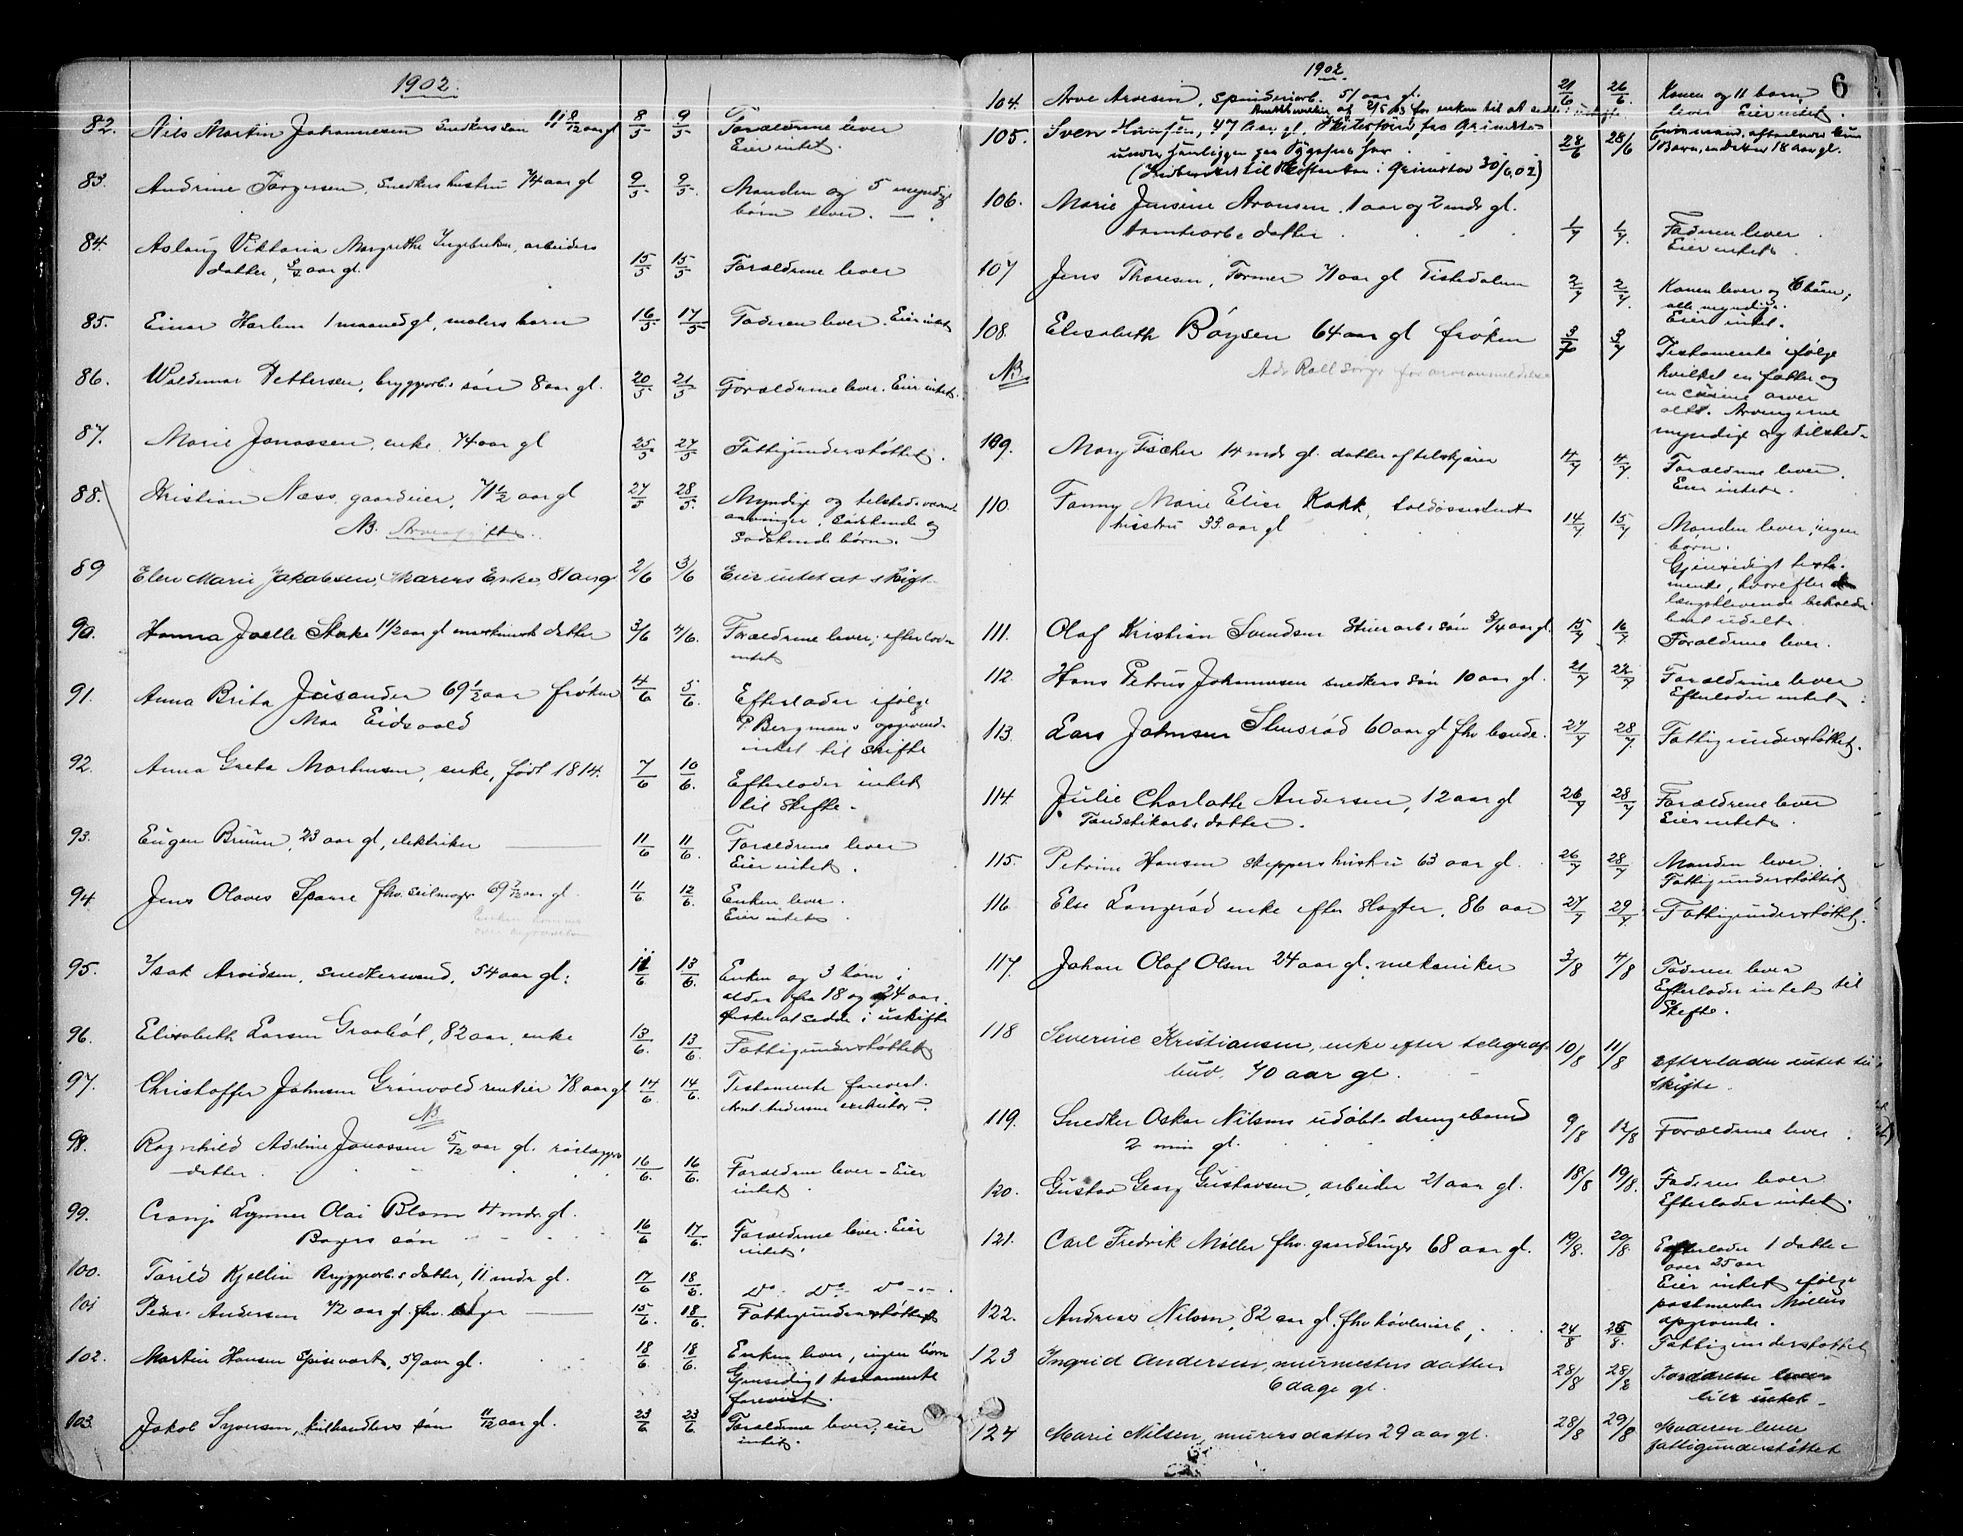 1902.
82. Nils Martin Johannesen Snedkers søn 11 8/12 aar gl 8/5 9/5 Forældrene lever
Eier intet.
83. Andrine Torgersen, Snedkers hustru 74 aar gl 9/5 9/5. Manden og 5 myndige
børn lever.
84. Aslaug Viktoria Margrethe Ingebretsen, arbeiders
datter, 3/4 aar gl. 15/5 15/5 Forældrene lever
85. Einar Harlem 1 maaned gl, malers barn 16/5 17/5 Faderen lever. Eier intet
86. Waldemar Pettersen, bryggarb. søn 8 aar gl. 20/5 21/5 Forældrene lever. Eier intet.
87. Marie Jonassen, enke, 74 aar gl 25/5 27/5 Fattigunderstøttet.
88. Kristian Næss, gaardeier, 71 1/2 aar gl 27/5 28/5. Myndige og tilstedeværende
arvinger, Sødskende og
NB. Arveafgift
Sødskendebørn.
89 Elen Marie Jakobsen, Enke, 81 aar gl 2/6 3/6 Eier intet at skifte
90. Hanna Joelle Stake 11/2 aar gl maskinarb datter 3/6 4/6. Forældrene lever; efterlader
intet
91. Anna Brita Jusander 69 1/2 aar frøken 4/6 5/6. Efterlader ifølge
Moa Eidsvold P Bergmans opgivende
intet til skifte
92. Anna Greta Martinsen, enke, født 1814. 7/6 10/6. Efterlader intet
til skifte.
93. Eugen Bruun, 23 aar gl, elektriker 11/6 11/6. Forældrene lever
Eier intet.
94. Jens Olaves Spane fhv. seilmager 69 7/12 aar gl. 11/6. 12/6. Enken lever.
Eier intet.
95. Isak Arvidsen, snedkersvend, 54 aar gl: 11/6 13/6. Enken og 3 børn i
alder fra 18 og 24 aar.
Ønsker at sidde i uskifte
96. Elisabeth Larsen Graabøl, 82 aar, enke 13/6. 13/6. Fattigunderstøttet
97. Christoffer Johnsen Grønvold rentier 78 aar gl 14/6. 14/6. Testamente forevist.
NB Arnt Andersen exekutor
98. Ragnhild Adeline Jonassen 5/12 aar gl.
datter. 16/6. 16/6. Forældrene lever - Eier
intet.
99. Cronje Lynner Olai Blom 4 mdr. gl.
Bagers søn 16/6 17/6. Forældrene lever. Eier
intet.
100. Torild Kjellin Bryggarb. s datter, 11 mdr gl. 17/6 18/6. Do - Do - Do
101 Peder Andersen 72 aar gl. fhv. 15/6. 18/6. Fattigunderstøttet
102. Martin Hansen Spisevært, 57 aar gl. 18/6. 18/6. Enken lever, ingen børn
Gjensidigt testamente
forevist.
103. Jakob Syversen, søn 11/12 aar gl. 23/6 23/6. Forældrene lever, eier
intet.
1902 6
104. Arve Arvesen, spinderiarb. 51 aar gl. 21/6 26/6. Konen og 11 børn
lever Eier intet.
105. Sven Hansen, 47 aar gl,
under henliggen paa Sygehuset her. 28/6 28/6
(Indberettet til i Grimstad 30/6 02)
106. Marie Jensine Aronsen. 1 aar og 2 mdr gl.
Tomtearb. datter. 1/7 1/7. Faderen lever.
Eier intet.
107 Jens Thoresen, Former 71 aar gl Tistedalen 2/7 2/7. Konen lever og 6 børn,
alle myndige.
Eier intet.
108. Elisabeth Bøysen 64 aar gl frøken 3/7 3/7 Testamente ifølge
NB. hvilket en fætter og
en cusine arver
alt. Arvingerne
myndige og tilsted-
109. Mary Fischer 14 mdr gl. datter af telskjærer 4/7 4/7 Forældrene lever.
Eier intet.
110. Fanny Marie Elise Kakk, toldassistent
hustru 33 aar gl 14/7 15/7 Manden lever, ingen
børn.
Gjensidigt testa-
mente, hvorefter
længstlevende beholder
boet udelt.
111. Olof Kristian Svendsen Stenarb. søn 3/4 aar gl. 15/7 16/7. Forældrene lever.
112. Hans Petrus Johannesen snedkers søn 10 aar gl. 21/7 22/7 Forældrene lever
Efterlader intet.
113. Lars Johnsen Stensrød 60 aar gl fhv bonde. 27/7 28/7 Fattigunderstøttet.
114 Julie Charlotte Andersen, 12 aar gl
Tændstikarb. datter. 26/7 28/7. Forældrene lever
Eier intet.
115. Petrine Hansen Skippers hustru 63 aar gl. 26/7 28/7 Manden lever.
Fattigunderstøttet
116 Else Langrød enke efter slagter, 86 aar 27/7 29/7. Fattigunderstøttet.
117. Johan Olaf Olsen 24 aar gl. mekaniker 3/8 4/8 Faderen lever
Efterlader intet til
Skifte.
118 Severine Kristiansen, enke efter telegraf-
bud. 70 aar gl. 10/8 11/8 efterlader intet til
Skifte.
119. Snedker Oskar Nilsens udøbte drengebarn
2 min gl. 9/8 12/8 Forældrene lever.
120. Gustav Georg Gustavsen, arbeider 21 aar gl. 18/8 19/8. Faderen lever
Efterlader intet.
121. Carl Fredrik Møller fhv. gaardbruger 68 aar gl. 19/8. 20/8 Efterlader 1 datter
over 25 aar
Eier intet ifølge
postmester Møllers
opgivende.
122. Andreas Nilsen, 82 aar gl. fhv høvleriarb, 24/8 25/8. Fattigunderstøttet
123 Ingrid Andersen, murmesters datter
6 dage gl. 28/8 28/8 Forældrene lever
Eier intet
124 Marie Nilsen, murers datter 29 aar gl. 28/8 29/8 Moderen lever
fattigunderstøttet